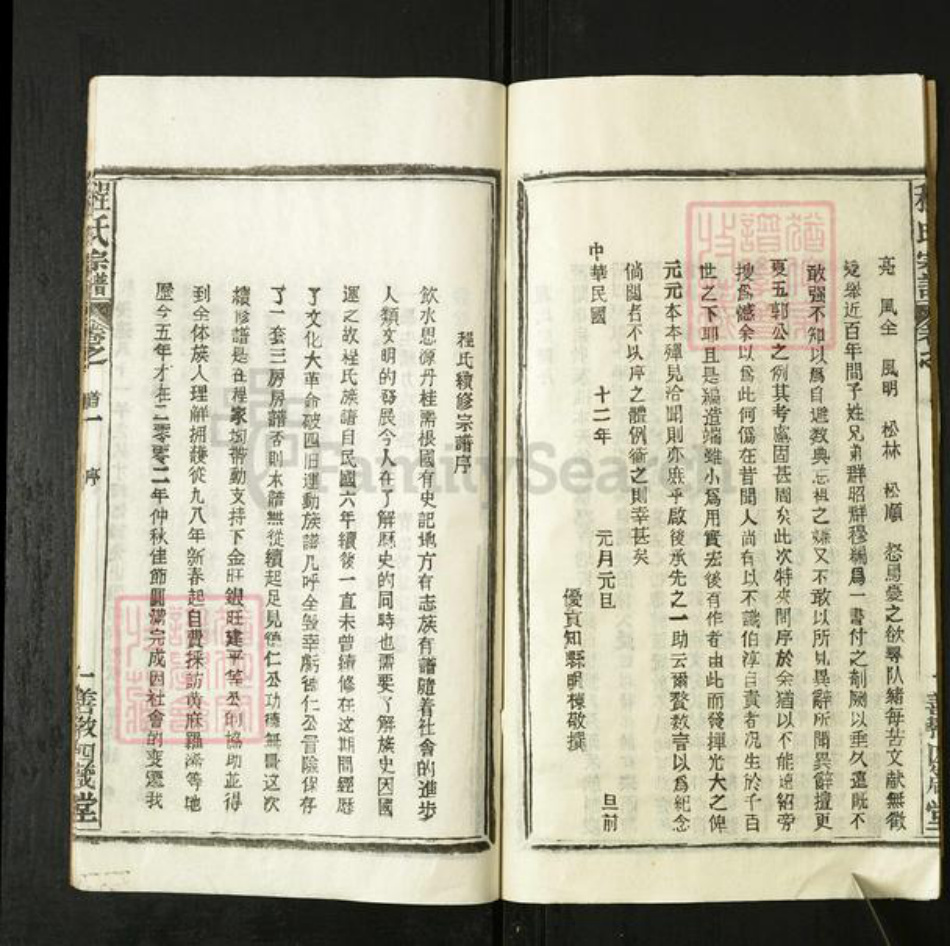 亮 風全 風明 松林 松順 怒焉憂之欲尋队緒每苦文献無徵
爰舉近百年間子姓兄弟群昭群穆編爲一書付之剞劂以垂久遠既不
敢强不知以爲自避数典忘祖之嫌又不敢以所見異辭所聞異辭擅更
夏五郭公之例其考慮固甚周矣此次特來問序於余猶以不能遠紹旁
搜爲憾余以爲此何傷在昔聞人尚有以不識伯淳自責者况生於千百
世之下耶且是編造端雖小爲用實宏後有作者由此而發揮光大之俾
元元本本殫見洽聞則亦庶乎啟後承先之一助云爾贅数言以爲紀念
倘閲者不以序之體例衡之則幸甚矣
中華民國 十二年 元月元旦 旦前
優貢知縣明棟敬撰
程氏宗譜 卷之一 首一 序 一善教四箴堂
程氏續修宗譜序
飲水思源丹桂需根國有史記地方有志族有譜隨着社會的進步
人類文明的發展今人在了解歷史的同時也需要了解族史因國
運之故程氏族譜自民國六年續後一直未曾續修在这期間經歷
了文化大革命破四旧運動族譜几呼全毁幸虧德仁公冒險保存
了一套三房房譜否則木譜無從續起足見德仁公功德無量这次
續修譜是在程家坳帶動支持下金旺銀旺建平等公的協助並得
到全体族人理解拥護從九八年新春起自費採訪黄麻羅济等地
歷今五年才在二零零二年仲秋佳節圓滿完成因社會的变遷我
FamilySearch